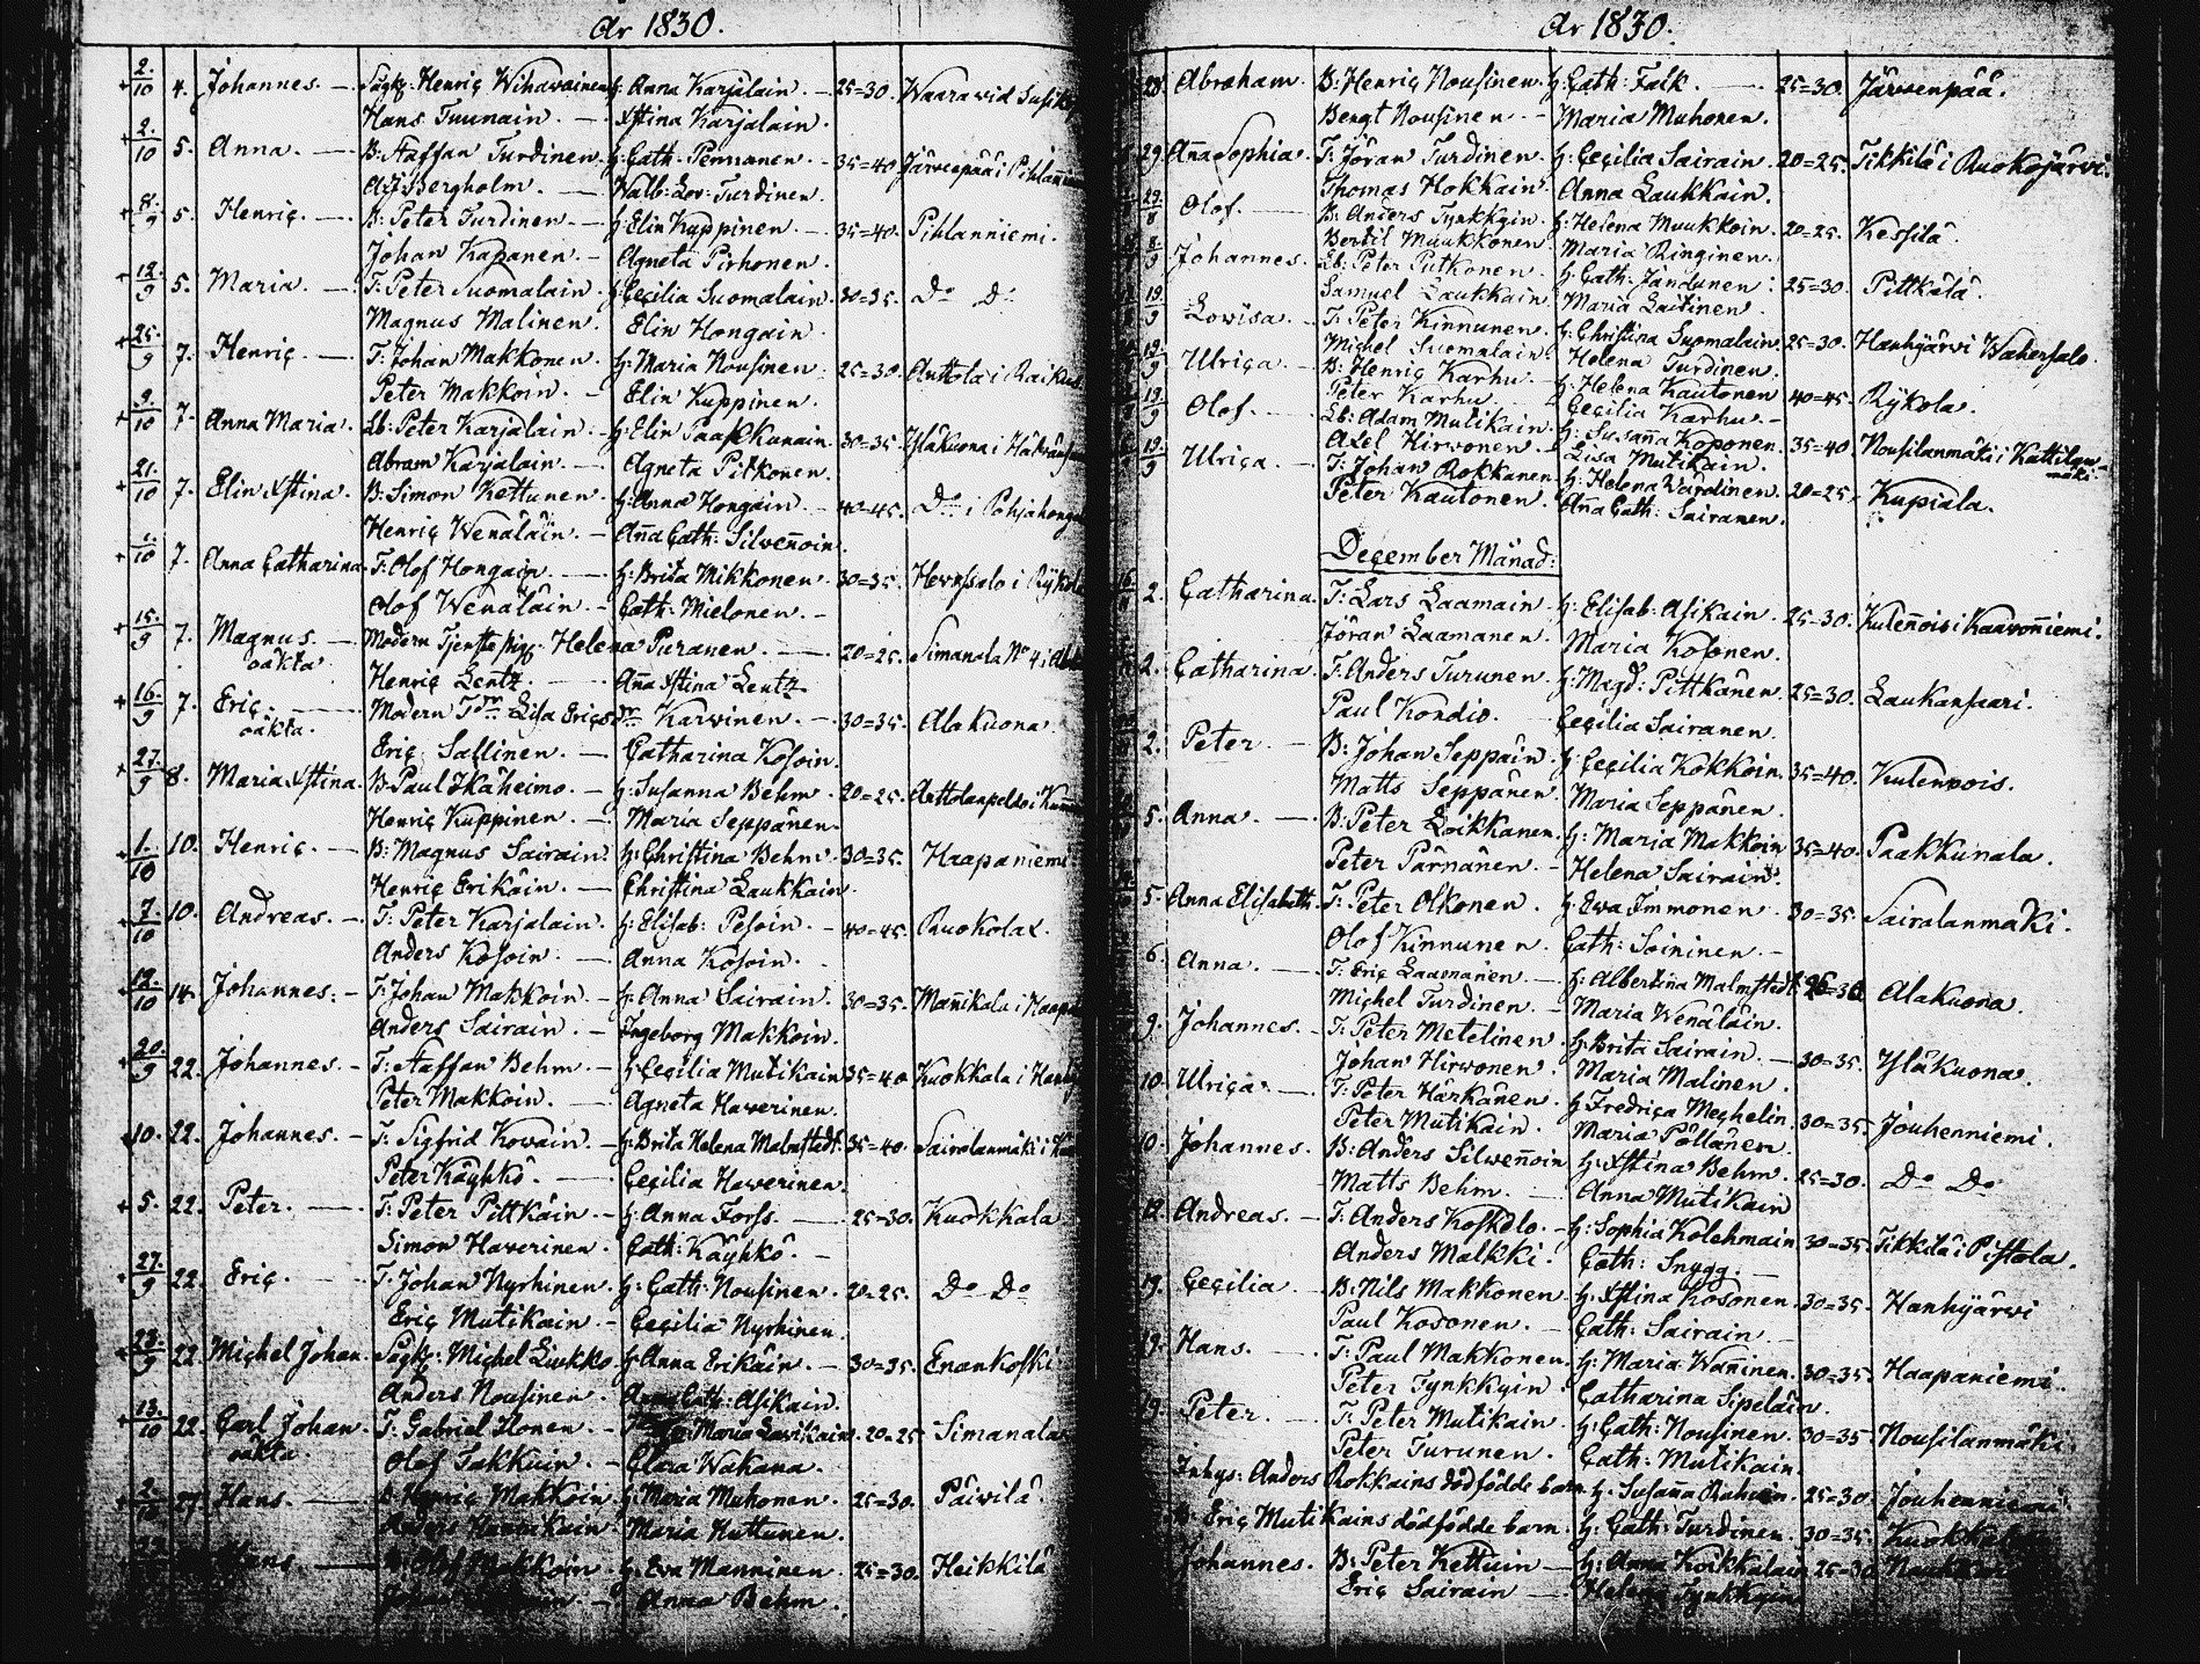 År 1830.
2./10 4. Johannes. Henriç Wihawainen h: Anna Karjalain. 25=30. Waara wid
Hans Tuunain. Xstina Karjalain.
2./10 5. Anna. B: Staffan Turdinen. h: Cath: Pennanen. 35=40. Järwenpää i
Bergholm. Walb: Lov: Turdinen.
8./9 5. Henriç. B: Peter Turdinen h: Elin Kuppinen. 35=40. Pihlanniemi.
Johan Kapanen. Agneta Pirhonen.
12./9 5. Maria. T: Peter Suomalain. h: Cecilia Suomalain. 30=35. Do Do
Magnus Malinen. Elin Hongain.
25./9 7. Henriç. T: Johan Makkonen. h: Maria Nousinen. 25=30. Anttola i
Peter Makkoin. Elin Kuppinen.
9./10 7. Anna Maria. Lb: Peter Karjalain. h: Elin Paakkunain. 30=35. Yläkuona i
Abram Karjalain. Agneta Pitkonen.
21./10 7. Elin Xstina. B: Simon Kettunen. h: Anna Hongain. 40=45. Do i
Henriç Wenäläin. Aña Cath: Silweñoin.
1./10 7. Anna Catharina. T: Olof Hongain. h: Brita Mikkonen. 30=35. i
Olof Wenäläin. Cath: Mielonen.
15./9 7. Magnus. Modern Tjenste pig: Helena Puranen. 20=25. Simanala No 4 i
oäkta. Henriç Lentz. Aña Xstina Lentz.
16./9 7. Eriç. Modern Lisa Karwinen. 30=35. Alakuona.
oäkta. Eriç Sallinen. Catharina Kosoin.
27./9 8. Maria Xstina. B: Paul Ikäheimo. h: Susanna Behm. 20=25. i
Henriç Kuppinen. Maria Seppänen.
1./10 10. Henriç. B: Magnus Sairain. h: Christina Behm. 30=35. Haapaniemi
Henriç Erikäin. Christina Laukkain.
7./10 10. Andreas. T: Peter Karjalain. h: Elisab: Pesoin. 40=45. Ruokolax.
Anders Kosoin. Anna Kosoin.
12./10 14. Johannes. T: Johan Makkoin. h: Anna Sairain. 30=35. Mañikala i
Anders Sairain. Ingeborg Makkoin.
20./9 22. Johannes. T: Staffan Behm. h: Cecilia Mutikain 35=40 Kuokkala i
Peter Makkoin. Agneta Hawerinen.
10. 22. Johannes. T: Sigfrid Kowain. h: Brita Helena Malmstedt. 35=40. Sairalanmäki i
Peter Käyhkö. Cecilia Hawerinen.
5. 22. Peter. T: Peter Pittkäin. h: Anna Forss. 25=30. Kuokkala
Simon Hawerinen. Cath: Käyhkö.
27./9 22. Eriç. T: Johan Nyrhinen. h: Cath: Nousinen. 20=25. Do Do
Eriç Mutikain. Cecilia Nyrhinen.
23./9 22. Michel Johan. Michel Liukko h: Anna Erikäin. 30=35. Enonkoski
Anders Nousinen. Anna Cath: Asikain.
13./10 22. Carl Johan. T: Gabriel Ilonen. Maria Lavikain. 20=25 Simanala
oäkta. Olof Takkuin. Clara Wakana.
2./10 27. Hans. B: Henriç Makkoin h: Maria Muhonen. 25=30. Päiwilä.
Anders Maria Huttunen.
Hans Olof Makkoin h: Eva Manninen. 25=30. Heikkilä
Johan Anna Behm.
År 1830.
28. Abraham. B: Henriç Nousinen. h: Cath: Falk. 25=30. Järwenpää.
Bengt Nousinen. Maria Muhonen.
29. Aña Sophia. T: Jöran Turdinen. h: Cecilia Sairain. 20=25. Tikkilä i Ruokojärwi.
Thomas Hokkain. Anna Laukkain.
29/8 Olof. B: Anders Tynkkyin. h: Helena Muukkoin. 20=25. Kessilä.
Bertil Muukkonen. Maria Ringinen.
8/9 Johannes. Lb: Peter Putkonen. h: Cath: Jandunen. 25=30. Pittkälä.
Samuel Laukkain. Maria Laitinen.
19./9 Lowisa. T: Peter Kinnunen. h: Christina Suomalain. 25=30. Hanhijärwi Wahersalo.
Michel Suomalain. Helena Turdinen.
19./9 Ulriça. B: Henriç Karhu. h: Helena Kautonen 40=45. Rykola.
Peter Karhu. Cecilia Karhu.
19./9 Olof. Lb: Adam Mutikain. h: Susaña Koponen. 35=40. Nousilanmäki i Kattilan-
mäki.
Axel Hirwonen. Lisa Mutikain.
19./9 Ulriça. T: Johan Rokkanen h: Helena Wärdinen. 20=25. Kupiala.
Peter Kautonen. Aña Cath: Sairanen.
December Månad:
16./11 2. Catharina. T: Lars Laamain h: Elisab: Asikain. 25=30. Kuleñois i Kaarvoñiemi.
Jöran Laamanen. Maria Kosonen.
2. Catharina. T: Anders Turunen. h: Magd: Pittkänen. 25=30. Laukansaari.
Paul Kondio. Cecilia Sairanen.
2. Peter. B: Johan Seppäin. h: Cecilia Kokkoin. 35=40. Kulennois.
Matts Seppänen. Maria Seppänen.
5. Anna. B: Peter Loikkanen. h: Maria Makkoin 35=40. Paakkunala.
Peter Pärnänen. Helena Sairain.
5. Anna Elisabeth. T: Peter Olkonen. h: Ewa Immonen. 30=35. Sairalanmäki.
Olof Kinnunen. Cath: Soininen.
6. Anna. T: Eriç Laamanen. h: Albertina Malmstedt. Alakuona.
Michel Turdinen. Maria Wenäläin.
9. Johannes. T: Peter Metelinen. h: Brita Sairain. 30=35. Yläkuona.
Johan Hirwonen. Maria Malinen.
10. Ulriça. T: Peter Härkänen. h: Fredriça Mechelin. 30=35. Jouhenniemi.
Peter Mutikain. Maria Pöllänen.
10. Johannes. B: Anders Silweñoin h: Xstina Behm. 25=30. Do Do
Matts Behm. Anna Mutikain
12. Andreas. T: Anders Koskolo. h: Sophia Kolehmain 30=35. Tikkilä i Pistala.
Anders Malkki. Cath: Snygg.
19. Cecilia. B: Nils Makkonen h: Xstina Kosonen. 30=35. Hanhijärwi
Paul Kosonen. Cath: Sairain.
19. Hans. T: Paul Makkonen. h: Maria Wañinen. 30=35. Haapaniemi.
Peter Tynkkyin. Catharina Sipeläin.
19. Peter. T: Peter Mutikain. h: Cath: Nousinen. 30=35. Nousilanmäki.
Peter Turunen. Cath: Mutikain.
Inhys: Anders Rokkains dödfödde barn. h: Susaña 25=30. Jouhenniemi.
B: Eriç Mutikains dödfödde barn. h: Cath: Turdinen. 30=35.
Johannes. B: Peter Kettuin h: Anna Koikkalain 25=30
Eriç Sairain Helena Tynkkynen